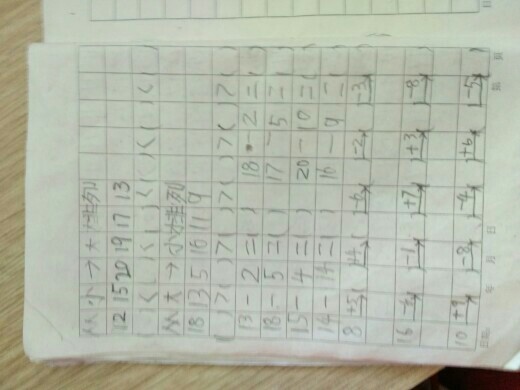 从小→大排列
12 15 20 19 17 13
( )<( )<( )<( )<( )<( )
从大→小排列
18 13 5 16 11 9
( )>( )>( )>( )>( )>( )
13-2=( ) 18-2=( )
18-5=( ) 17-5=( )
15-4=( ) 20-10=( )
14-14=( ) 16-9=( )
8 +5→( ) -6→( ) -2→( ) -3→( )
16 ( ) -1→( ) +7→( ) +3→( ) -8→( )
10 +9→( ) -8→( ) -4→( ) +6→( ) -5→( )